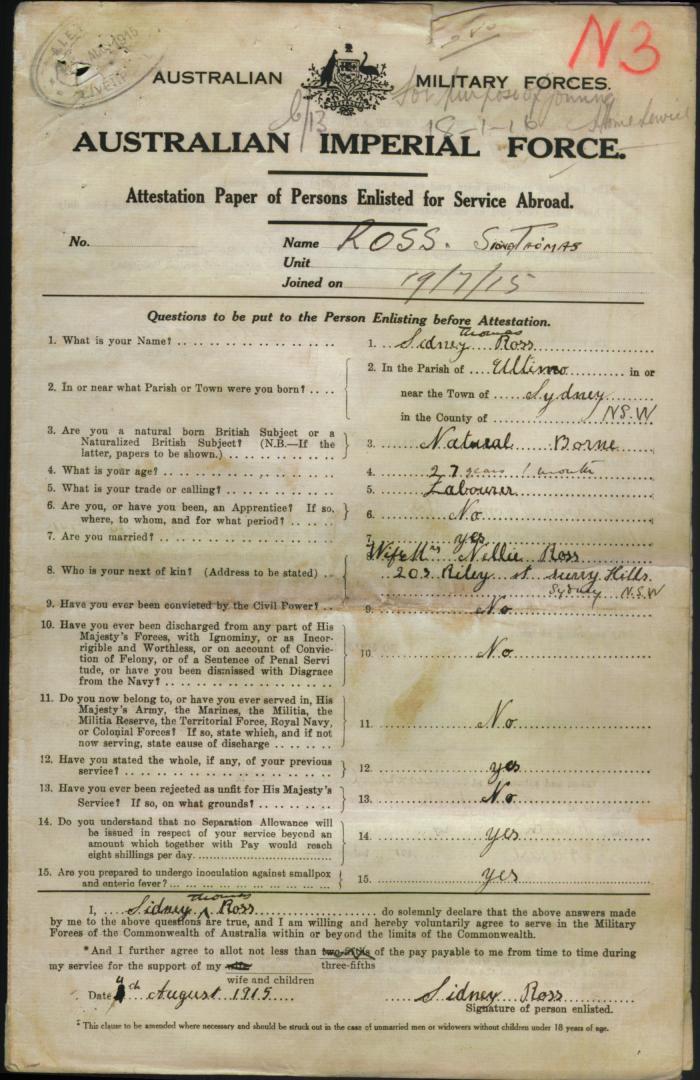 N3
AUSTRALIAN MILITARY FORCES.
for purpose of joining
18-1-16 Home Service
AUSTRALIAN IMPERIAL FORCE.
Attestation Paper of Persons Enlisted for Service Abroad.
No. Name ROSS. Sidney Thomas
Unit
Joined on 19/7/15
Questions to be put to the Person Enlisting before Attestation.
1. What is your Name? 1. Sidney Thomas Ross
2. In or near what Parish or Town were you born? 2. In the Parish of Ultimo in or
near the Town of Sydney
in the County of N.S.W
3. Are you a natural born British Subject or a
Naturalized British Subject? (N.B.—If the
latter, papers to be shown.) 3. Natural Borne
4. What is your age? 4. 27 years 1 month
5. What is your trade or calling? 5. Labourer
6. Are you, or have you been, an Apprentice? If so,
where, to whom, and for what period? 6. No
7. Are you married? 7. yes
8. Who is your next of kin? (Address to be stated) Wife Mrs Nellie Ross
203 Riley st Surry Hills
Sydney N.S.W
9. Have you ever been convicted by the Civil Power? 9. No
10. Have you ever been discharged from any part of His
Majesty's Forces, with Ignominy, or as Incor-
rigible and Worthless, or on account of Convic-
tion of Felony, or of a Sentence of Penal Servi
tude, or have you been dismissed with Disgrace
from the Navy? 10. No
11. Do you now belong to, or have you ever served in, His
Majesty's Army, the Marines, the Militia, the
Militia Reserve, the Territorial Force, Royal Navy,
or Colonial Forces? If so, state which, and if not
now serving, state cause of discharge 11. No
12. Have you stated the whole, if any, of your previous
service? 12. yes
13. Have you ever been rejected as unfit for His Majesty's
Service? If so, on what grounds? 13. No
14. Do you understand that no Separation Allowance will
be issued in respect of your service beyond an
amount which together with Pay would reach
eight shillings per day. 14. yes
15. Are you prepared to undergo inoculation against smallpox
and enteric fever? 15. yes
I, Sidney Thomas Ross do solemnly declare that the above answers made
by me to the above questions are true, and I am willing and hereby voluntarily agree to serve in the Military
Forces of the Commonwealth of Australia within or beyond the limits of the Commonwealth.
*And I further agree to allot not less than two-fifths of the pay payable to me from time to time during
three-fifths
my service for the support of my wife
wife and children
Date 4th August 1915 Sidney Ross
Signature of person enlisted.
* This clause to be amended where necessary and should be struck out in the case of unmarried men or widowers without children under 18 years of age.